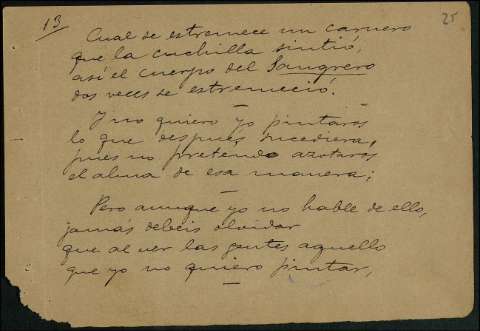 13
25
Cual se estremece un carnero
que la cuchilla sintió,
así el cuerpo del Sangrero
dos veces se estremeció.
Y no quiero yo pintaros
lo que después sucediera,
pues no pretendo azotaros
el alma de esa manera;
Pero aunque yo no hable de ello,
jamás debéis olvidar
que al ver las gentes aquello
que yo no quiero pintar,